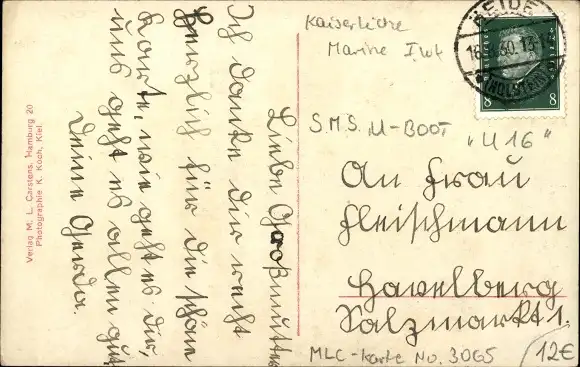 Liebe Großmutter
Ich danke dir recht
herzlich für die schöne
Karte, wie geht es dir,
uns geht es allen gut
Deine Gerda.
Verlag M. L. Carstens, Hamburg 20
Photographie K. Koch, Kiel
Kaiserliche
Marine I.wk
HEIDE
(HOLSTEIN)
8 8
S.M.S. U-BOOT
"U 16"
An Frau
Fleischmann
Havelberg
Salzmarkt 1.
MLC-Karte No. 3065
12€